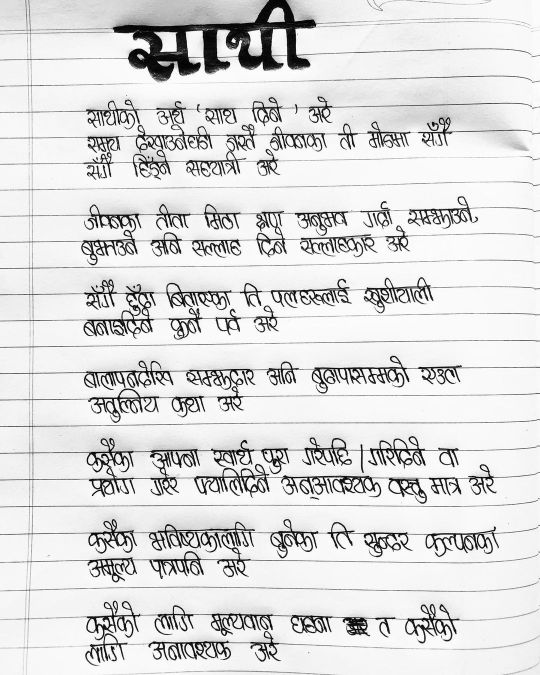 साथी
साथीको अर्थ 'साथ दिने' अरे
समय देखाउनेघडी जस्तै जीवनका ती मोडमा सँगै
सँगै हिँड्ने सहयात्री अरे
जीवनका तीता मिठा क्षण अनुभव गर्दा सम्झाउने,
बुझाउने अनि सल्लाह दिने सल्लाहकार अरे
सँगै हुँदा बिताएका ति पलहरुलाई खुशीयाली
बनाइदिने कुनै पर्व अरे
बालापनदेखि समझदार अनि बुढापासम्मको एउटा
अतुल्निय कथा अरे
कसैका आफ्ना स्वार्थ पुरा गरेपछि / गरिदिने वा
प्रयोग गरेर फ्यालिदिने अनआवश्यक वस्तु मात्र अरे
कसैका भविष्यकालागि बुनेका ति सुन्दर कल्पनका
अमूल्य पात्रपनि अरे
कसैको लागि मूल्यवान गहना त कसैको
लागि अनावश्यक अरे